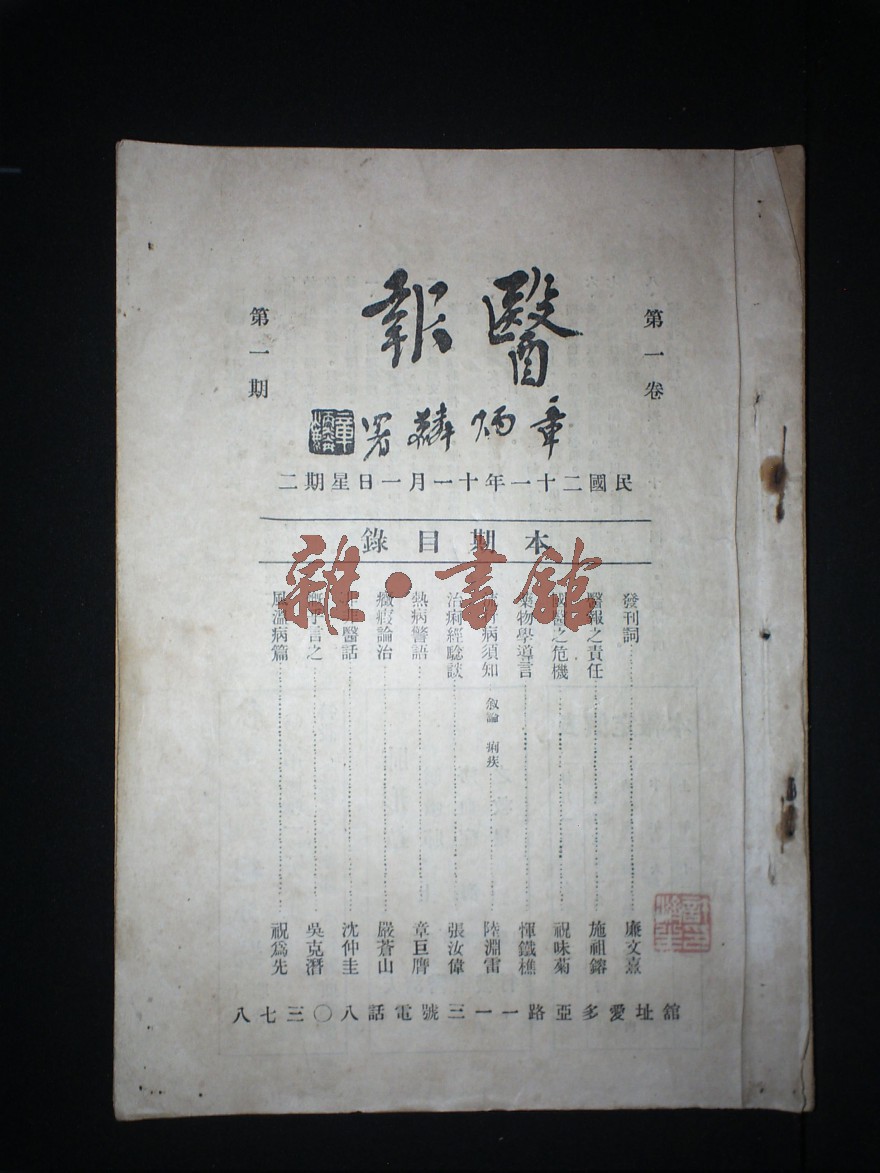 第一卷
醫報
章炳麟署
第一期
民國二十一年十一月一日星期二
本期目錄
發刊詞 廉文熹
醫報之責任 施祖鎔
國醫之危機 祝味菊
藥物學導言 惲鐵樵
病須知 敘論 痢疾 陸淵雷
治痢經驗談 張汝偉
熱病警語 章巨膺
癥瘕論治 嚴蒼山
醫話 沈仲圭
言之 吳克潛
風溫病篇 祝爲先
館址愛多亞路一一三號電話八〇三七八
雜·書館